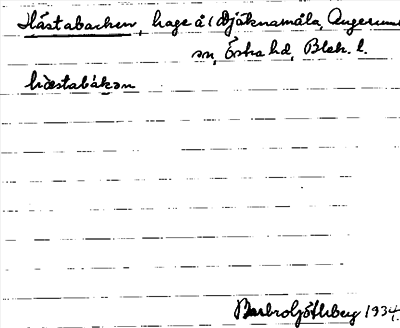 Hästabacken, hage å (Djäknamåla, Augerums
sn, Östra hd, Blek. l.
hæstabákən
Barbro Göthberg 1934.